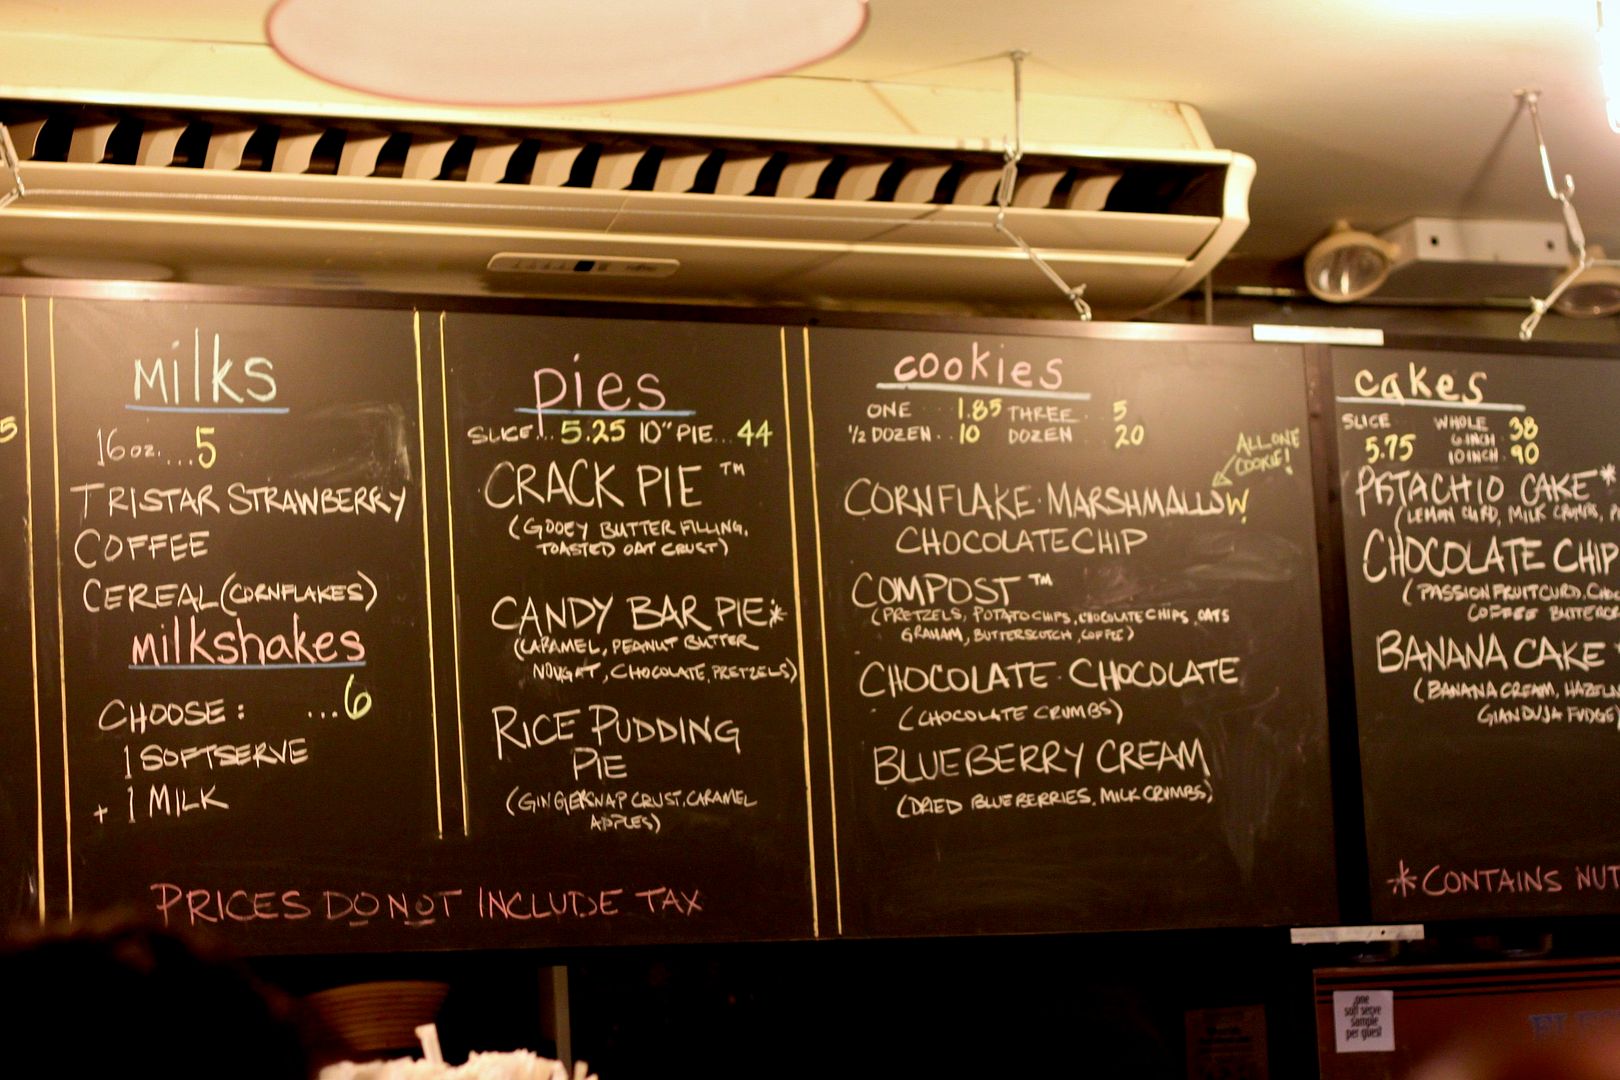 5
milks
16 oz. ... 5
TRISTAR STRAWBERRY
COFFEE
CEREAL (CORNFLAKES)
milkshakes
CHOOSE: ...6
1 SOFTSERVE
+ 1 MILK
pies
SLICE... 5.25 10" PIE... 44
CRACK PIE ™
(GOOEY BUTTER FILLING,
TOASTED OAT CRUST)
CANDY BAR PIE*
(CARAMEL, PEANUT BUTTER
NOUGAT, CHOCOLATE, PRETZELS)
RICE PUDDING
PIE
(GINGERSNAP CRUST, CARAMEL
APPLES)
PRICES DO NOT INCLUDE TAX
cookies
ONE ... 1.85 THREE . 5
½ DOZEN .. 10 DOZEN 20
ALL ONE
COOKIE!
CORNFLAKE·MARSHMALLOW
CHOCOLATE CHIP
COMPOST ™
(PRETZELS, POTATO CHIPS, CHOCOLATE CHIPS, OATS
GRAHAM, BUTTERSCOTCH, COFFEE)
CHOCOLATE·CHOCOLATE
(CHOCOLATE CRUMBS)
BLUEBERRY CREAM
(DRIED BLUEBERRIES, MILK CRUMBS)
cakes
SLICE WHOLE
5.75 6 INCH . 38
10 INCH . 90
PISTACHIO CAKE*
(LEMON CURD, MILK CRUMBS,
CHOCOLATE CHIP
(PASSIONFRUIT CURD,
COFFEE
BANANA CAKE *
(BANANA CREAM,
GIANDUJA FUDGE)
* CONTAINS NUT
one
soft serve
sample
per guest